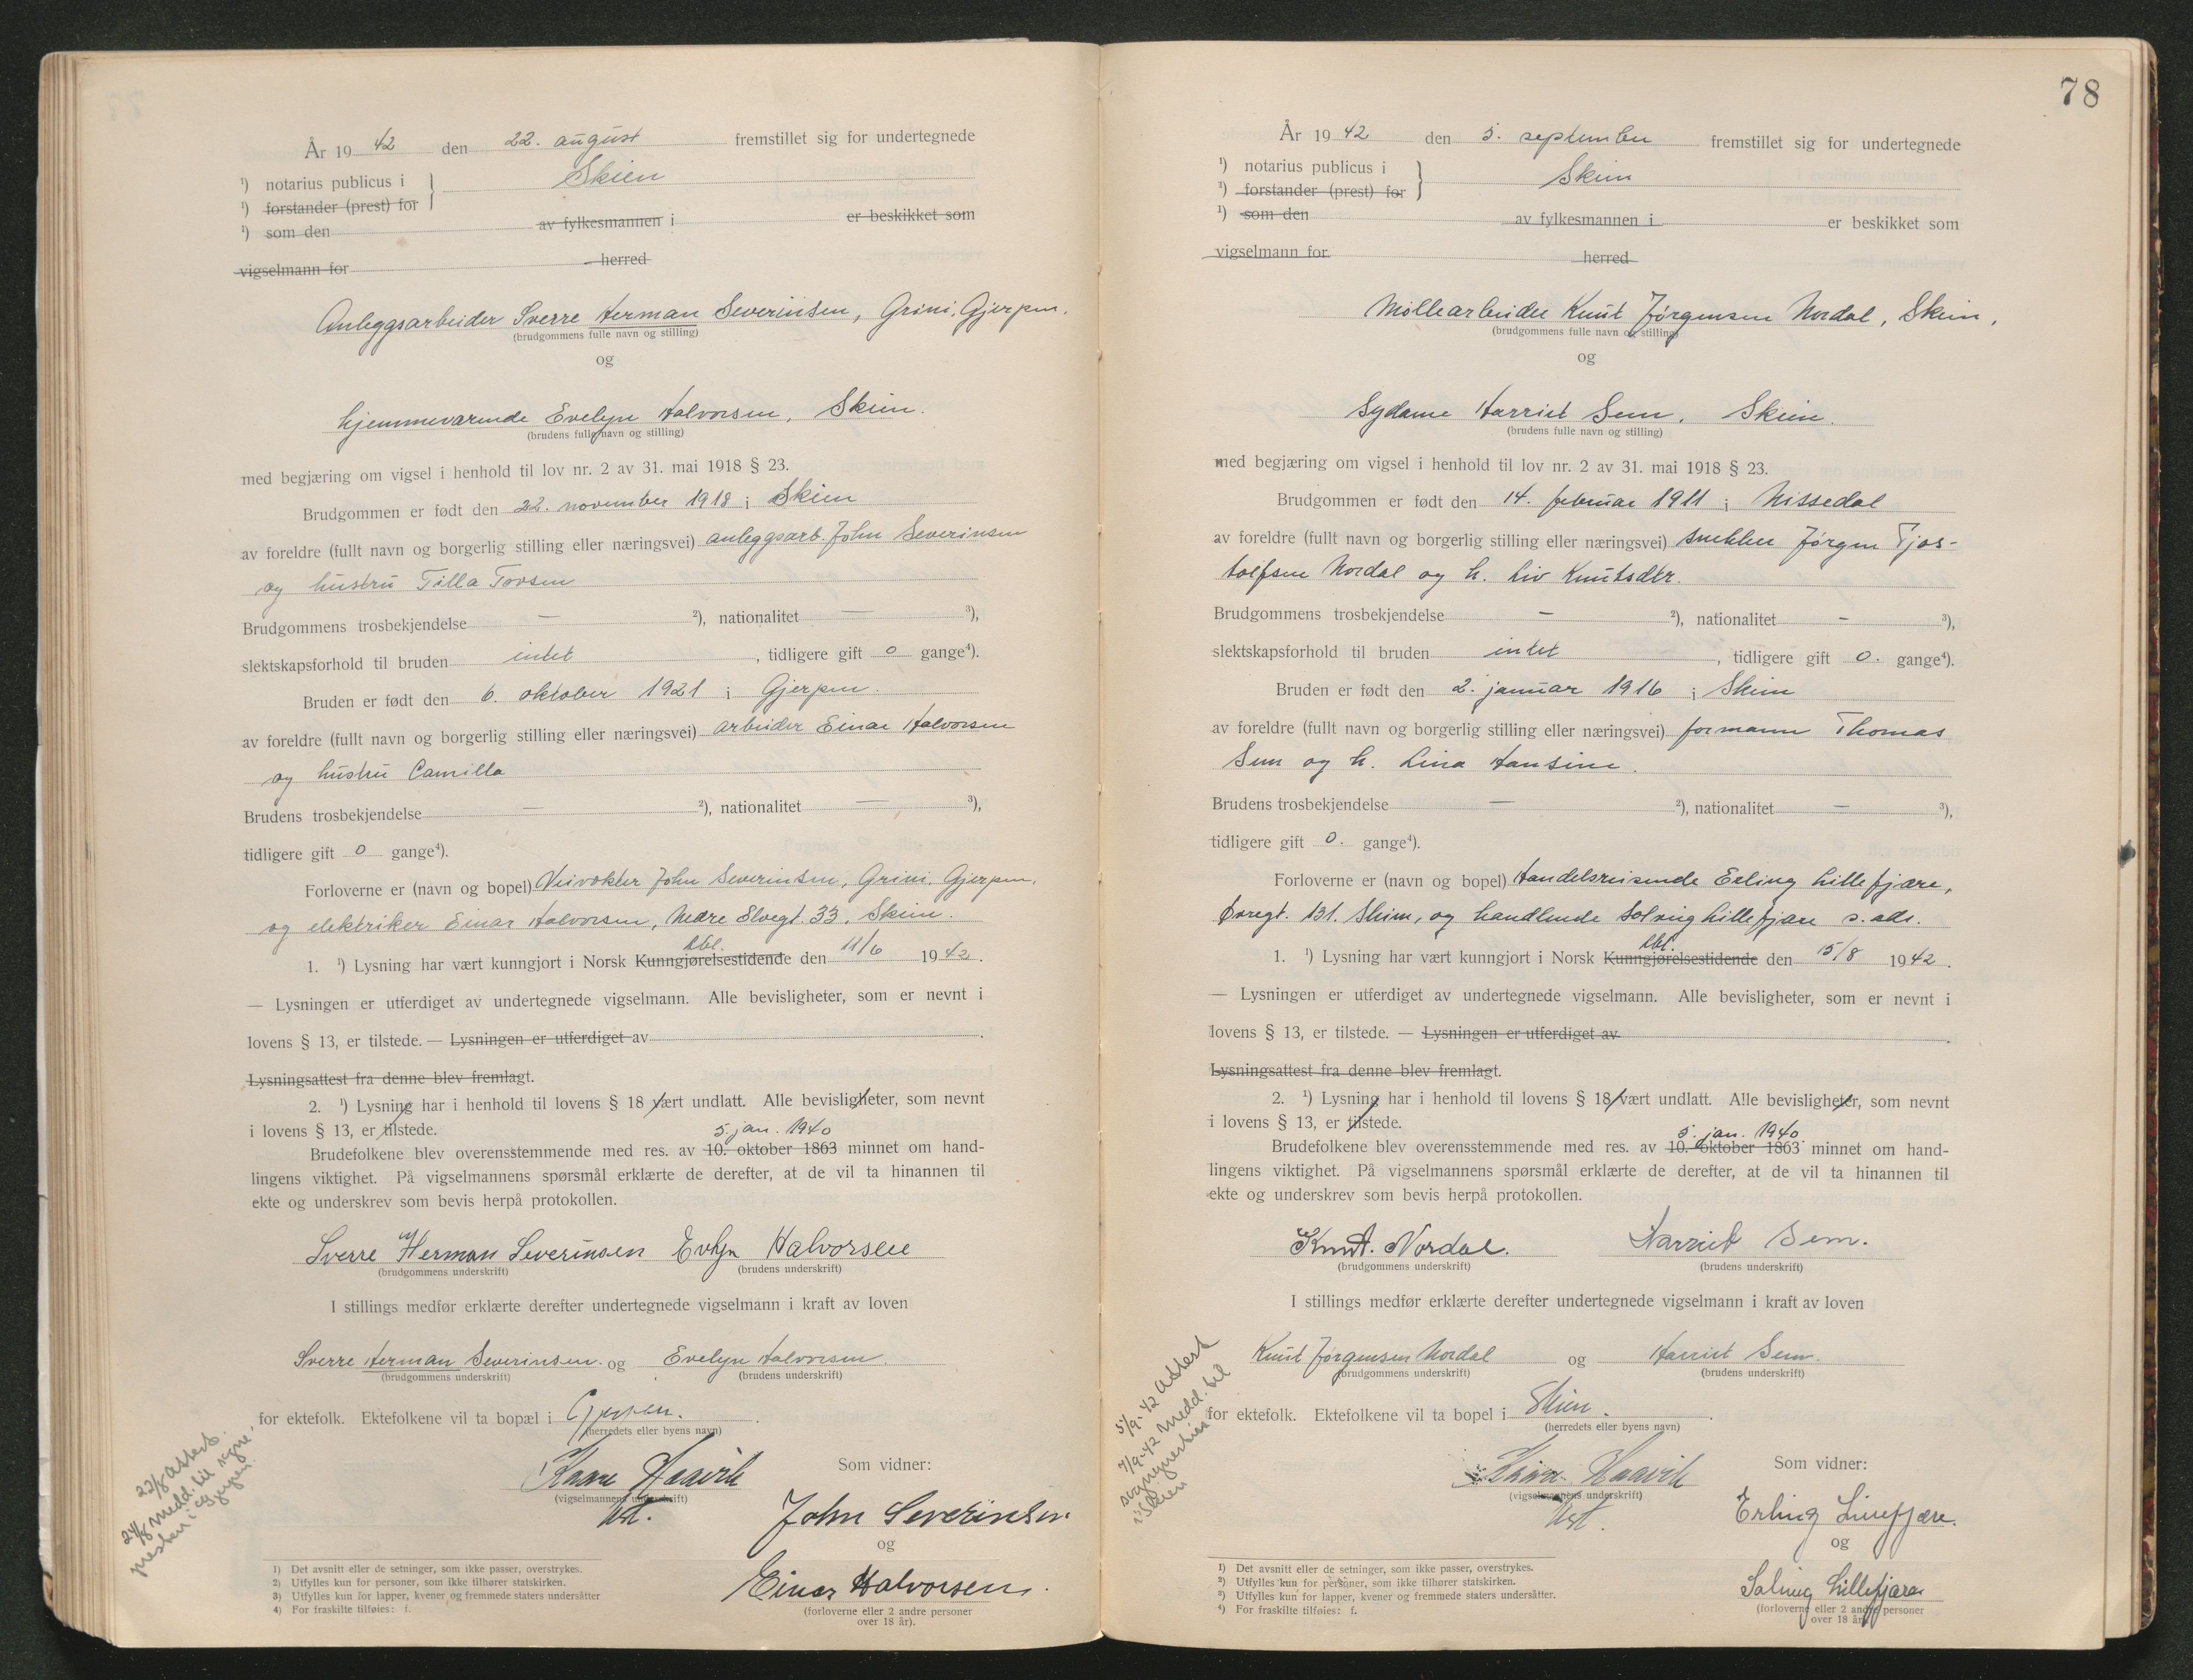 År 19 42 den 22. august fremstillet sig for undertegnede
¹) notarius publicus i Skien
¹) forstander (prest) for
¹) som den av fylkesmannen i er beskikket som
vigselmann for herred
Anleggsarbeider Sverre Herman Severinsen, Grini, Gjerpen.
(brudgommens fulle navn og stilling)
og
hjemmeværende Evelyn Halvorsen, Skien.
(brudens fulle navn og stilling)
med begjæring om vigsel i henhold til lov nr. 2 av 31. mai 1918 § 23.
Brudgommen er født den 22. november 1918 i Skien
av foreldre (fullt navn og borgerlig stilling eller næringsvei) anleggsarb. John Severinsen
og hustru Tilla Torsen
Brudgommens trosbekjendelse — ²), nationalitet — ³),
slektskapsforhold til bruden intet , tidligere gift 0 gange⁴).
Bruden er født den 6. oktober 1921 i Gjerpen.
av foreldre (fullt navn og borgerlig stilling eller næringsvei) arbeider Einar Halvorsen
og hustru Camilla
Brudens trosbekjendelse — ²), nationalitet — ³),
tidligere gift 0 gange⁴).
Forloverne er (navn og bopel) Veivokter John Severinsen, Grini, Gjerpen,
og elektriker Einar Halvorsen, Nedre Elvegt. 33, Skien.
lbl.
1. ¹) Lysning har vært kunngjort i Norsk Kunngjørelsestidende den 11/6 1942.
— Lysningen er utferdiget av undertegnede vigselmann. Alle bevisligheter, som er nevnt i
lovens § 13, er tilstede. — Lysningen er utferdiget av .
Lysningsattest fra denne blev fremlagt.
2. ¹) Lysning har i henhold til lovens § 18 vært undlatt. Alle bevisligheter, som nevnt
i lovens § 13, er tilstede. 5. jan. 1940
Brudefolkene blev overensstemmende med res. av 10. oktober 1863 minnet om hand-
lingens viktighet. På vigselmannens spørsmål erklærte de derefter, at de vil ta hinannen til
ekte og underskrev som bevis herpå protokollen.
Sverre Herman Severinsen Evelyn Halvorsen
(brudgommens underskrift) (brudens underskrift)
I stillings medfør erklærte derefter undertegnede vigselmann i kraft av loven
Sverre Herman Severinsen og Evelyn Halvorsen.
(brudgommens underskrift) (brudens underskrift)
for ektefolk. Ektefolkene vil ta bopæl i Gjerpen.
(herredets eller byens navn)
Kaare Haavik Som vidner:
(vigselmannens underskrift)
kst.
John Severinsen
og
Einar Halvorsen.
(forloverne eller 2 andre personer
over 18 år).
22/8 attest.
24/8 medd. til sogne-
presten i Gjerpen.
1) Det avsnitt eller de setninger, som ikke passer, overstrykes.
2) Utfylles kun for personer, som ikke tilhører statskirken.
3) Utfylles kun for lapper, kvener og fremmede staters undersåtter
4) For fraskilte tilføies: f.
78
År 19 42 den 5. september fremstillet sig for undertegnede
¹) notarius publicus i Skien
¹) forstander (prest) for
¹) som den av fylkesmannen i er beskikket som
vigselmann for herred
Møllearbeider Knut Jørgensen Nordal, Skien,
(brudgommens fulle navn og stilling)
og
Sydame Harriet Sem, Skien.
(brudens fulle navn og stilling)
med begjæring om vigsel i henhold til lov nr. 2 av 31. mai 1918 § 23.
Brudgommen er født den 14. februar 1911 i Nissedal
av foreldre (fullt navn og borgerlig stilling eller næringsvei) snekker Jørgen Tjos-
tolfsen Nordal og h. Liv Knutsdtr.
Brudgommens trosbekjendelse — ²), nationalitet — ³),
slektskapsforhold til bruden intet , tidligere gift 0. gange⁴).
Bruden er født den 2. januar 1916 i Skien
av foreldre (fullt navn og borgerlig stilling eller næringsvei) formann Thomas
Sem og h. Lina Hansine.
Brudens trosbekjendelse — ²), nationalitet — ³),
tidligere gift 0. gange⁴).
Forloverne er (navn og bopel) Handelsreisende Erling Lillefjære,
131. Skien, og handlende Solveig Lillefjære s. adr.
lbl.
1. ¹) Lysning har vært kunngjort i Norsk Kunngjørelsestidende den 15/8 1942.
— Lysningen er utferdiget av undertegnede vigselmann. Alle bevisligheter, som er nevnt i
lovens § 13, er tilstede. — Lysningen er utferdiget av .
Lysningsattest fra denne blev fremlagt.
2. ¹) Lysning har i henhold til lovens § 18 vært undlatt. Alle bevisligheter, som nevnt
i lovens § 13, er tilstede. 5. jan. 1940.
Brudefolkene blev overensstemmende med res. av 10. oktober 1863 minnet om hand-
lingens viktighet. På vigselmannens spørsmål erklærte de derefter, at de vil ta hinannen til
ekte og underskrev som bevis herpå protokollen.
Knut. Nordal. Harriet Sem.
(brudgommens underskrift) (brudens underskrift)
I stillings medfør erklærte derefter undertegnede vigselmann i kraft av loven
Knut Jørgensen Nordal og Harriet Sem.
(brudgommens underskrift) (brudens underskrift)
for ektefolk. Ektefolkene vil ta bopel i Skien.
(herredets eller byens navn)
Kaare Haavik Som vidner:
(vigselmannens underskrift)
kst.
Erling Lillefjære.
og
Solveig Lillefjære
(forloverne eller 2 andre personer
over 18 år).
5/9-42 attest
7/9-42 medd. til
sogneprest
i Skien
1) Det avsnitt eller de setninger, som ikke passer, overstrykes.
2) Utfylles kun for personer, som ikke tilhører statskirken.
3) Utfylles kun for lapper, kvener og fremmede staters undersåtter.
4) For fraskilte tilføies: f.